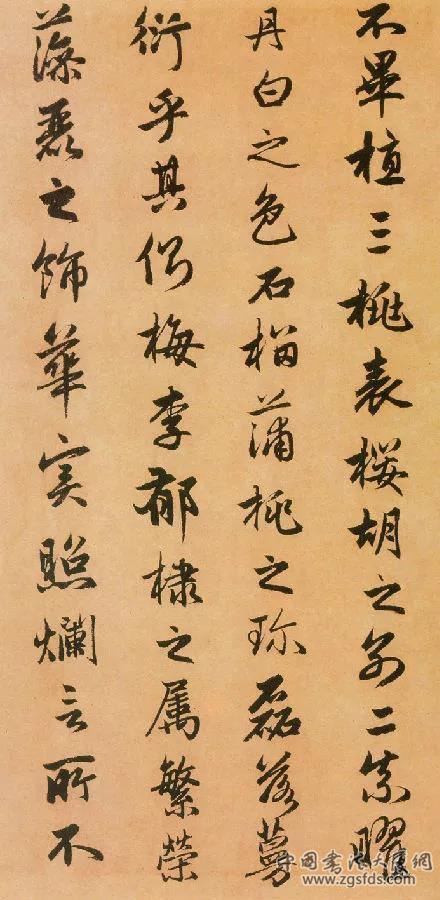 不畢植三桃表櫻胡之别二柰曜
丹白之色石榴蒲桃之珎磊落蔓
衍乎其側梅李郁棣之属繁榮
藻麗之飾華實照爛言所不
www.zgsfds.com